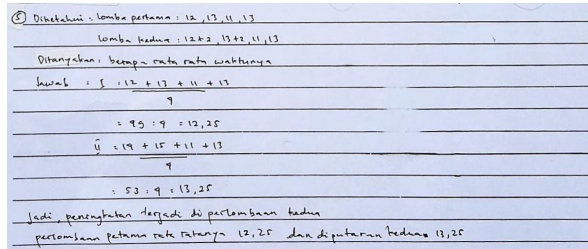 ⑤ Diketahui : lomba pertama : 12, 13, 11, 13
lomba kedua : 12+2, 13+2, 11, 13
Ditanyakan : berapa rata rata waktunya
Jawab = I : 12 + 13 + 11 + 13
4
= 49 : 4 = 12,25
II = 14 + 15 + 11 + 13
4
= 53 : 4 = 13,25
Jadi, peningkatan terjadi di perlombaan kedua
perlombaan petama rata ratanya 12,25 dan diputaran kedua 13,25